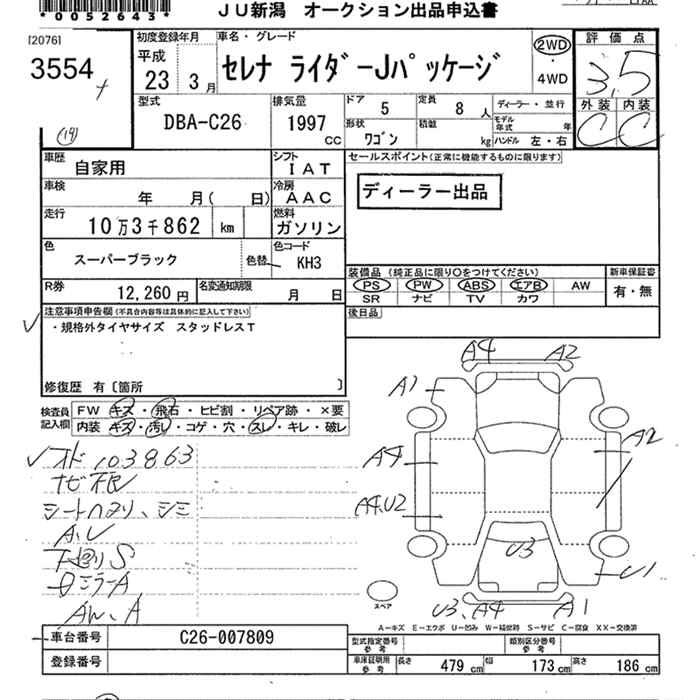 *0052643*
JU新潟 オークション出品申込書
[20761
3554
(19)
初度登録年月
平成
23 3月
車名・グレード
セレナ ライダーJパッケージ
2WD
・
4WD
評価点
3.5
外装 内装
C C
型式
DBA-C26
排気量
1997
CC
ドア 5
定員 8 人
形状 ワゴン
積載 kg
ディーラー・並行
モデル年式 年
ハンドル 左・右
車歴 自家用
シフト IAT
車検 年 月( 日)
冷房 AAC
走行 10万3千862 km
燃料 ガソリン
色 スーパーブラック
色替
色コード KH3
R券 12,260円
名変通知期限 月 日
セールスポイント(正常に機能するものに限ります)
ディーラー出品
装備品 (純正品に限り○をつけてください)
PS PW ABS エアB AW
SR ナビ TV カワ
新車保証書
有・無
後日品
注意事項申告欄(不具合内容等は具体的に記入して下さい)
・規格外タイヤサイズ スタッドレスT
修復歴 有〔箇所 〕
検査員記入欄
FW キズ・飛石・ヒビ割・リペア跡・×要
内装 キズ・汚し・コゲ・穴・スレ・キレ・破レ
オド 103863
ナビ不良
シートヘタリ、シミ
A.U
下廻りS
ロミラーA
AW、A
A4 A2
A1
A4
A2
A4.U2
U3
U1
U3、A4 A1
スペア
A－キズ E－エクボ U－凹み W－補修跡 S－サビ C－腐食 XX－交換済
車台番号 C26-007809
登録番号
型式指定番号 参考
類別区分番号 参考
車庫証明用 参考 長さ 479 cm 幅 173 cm 高さ 186 cm